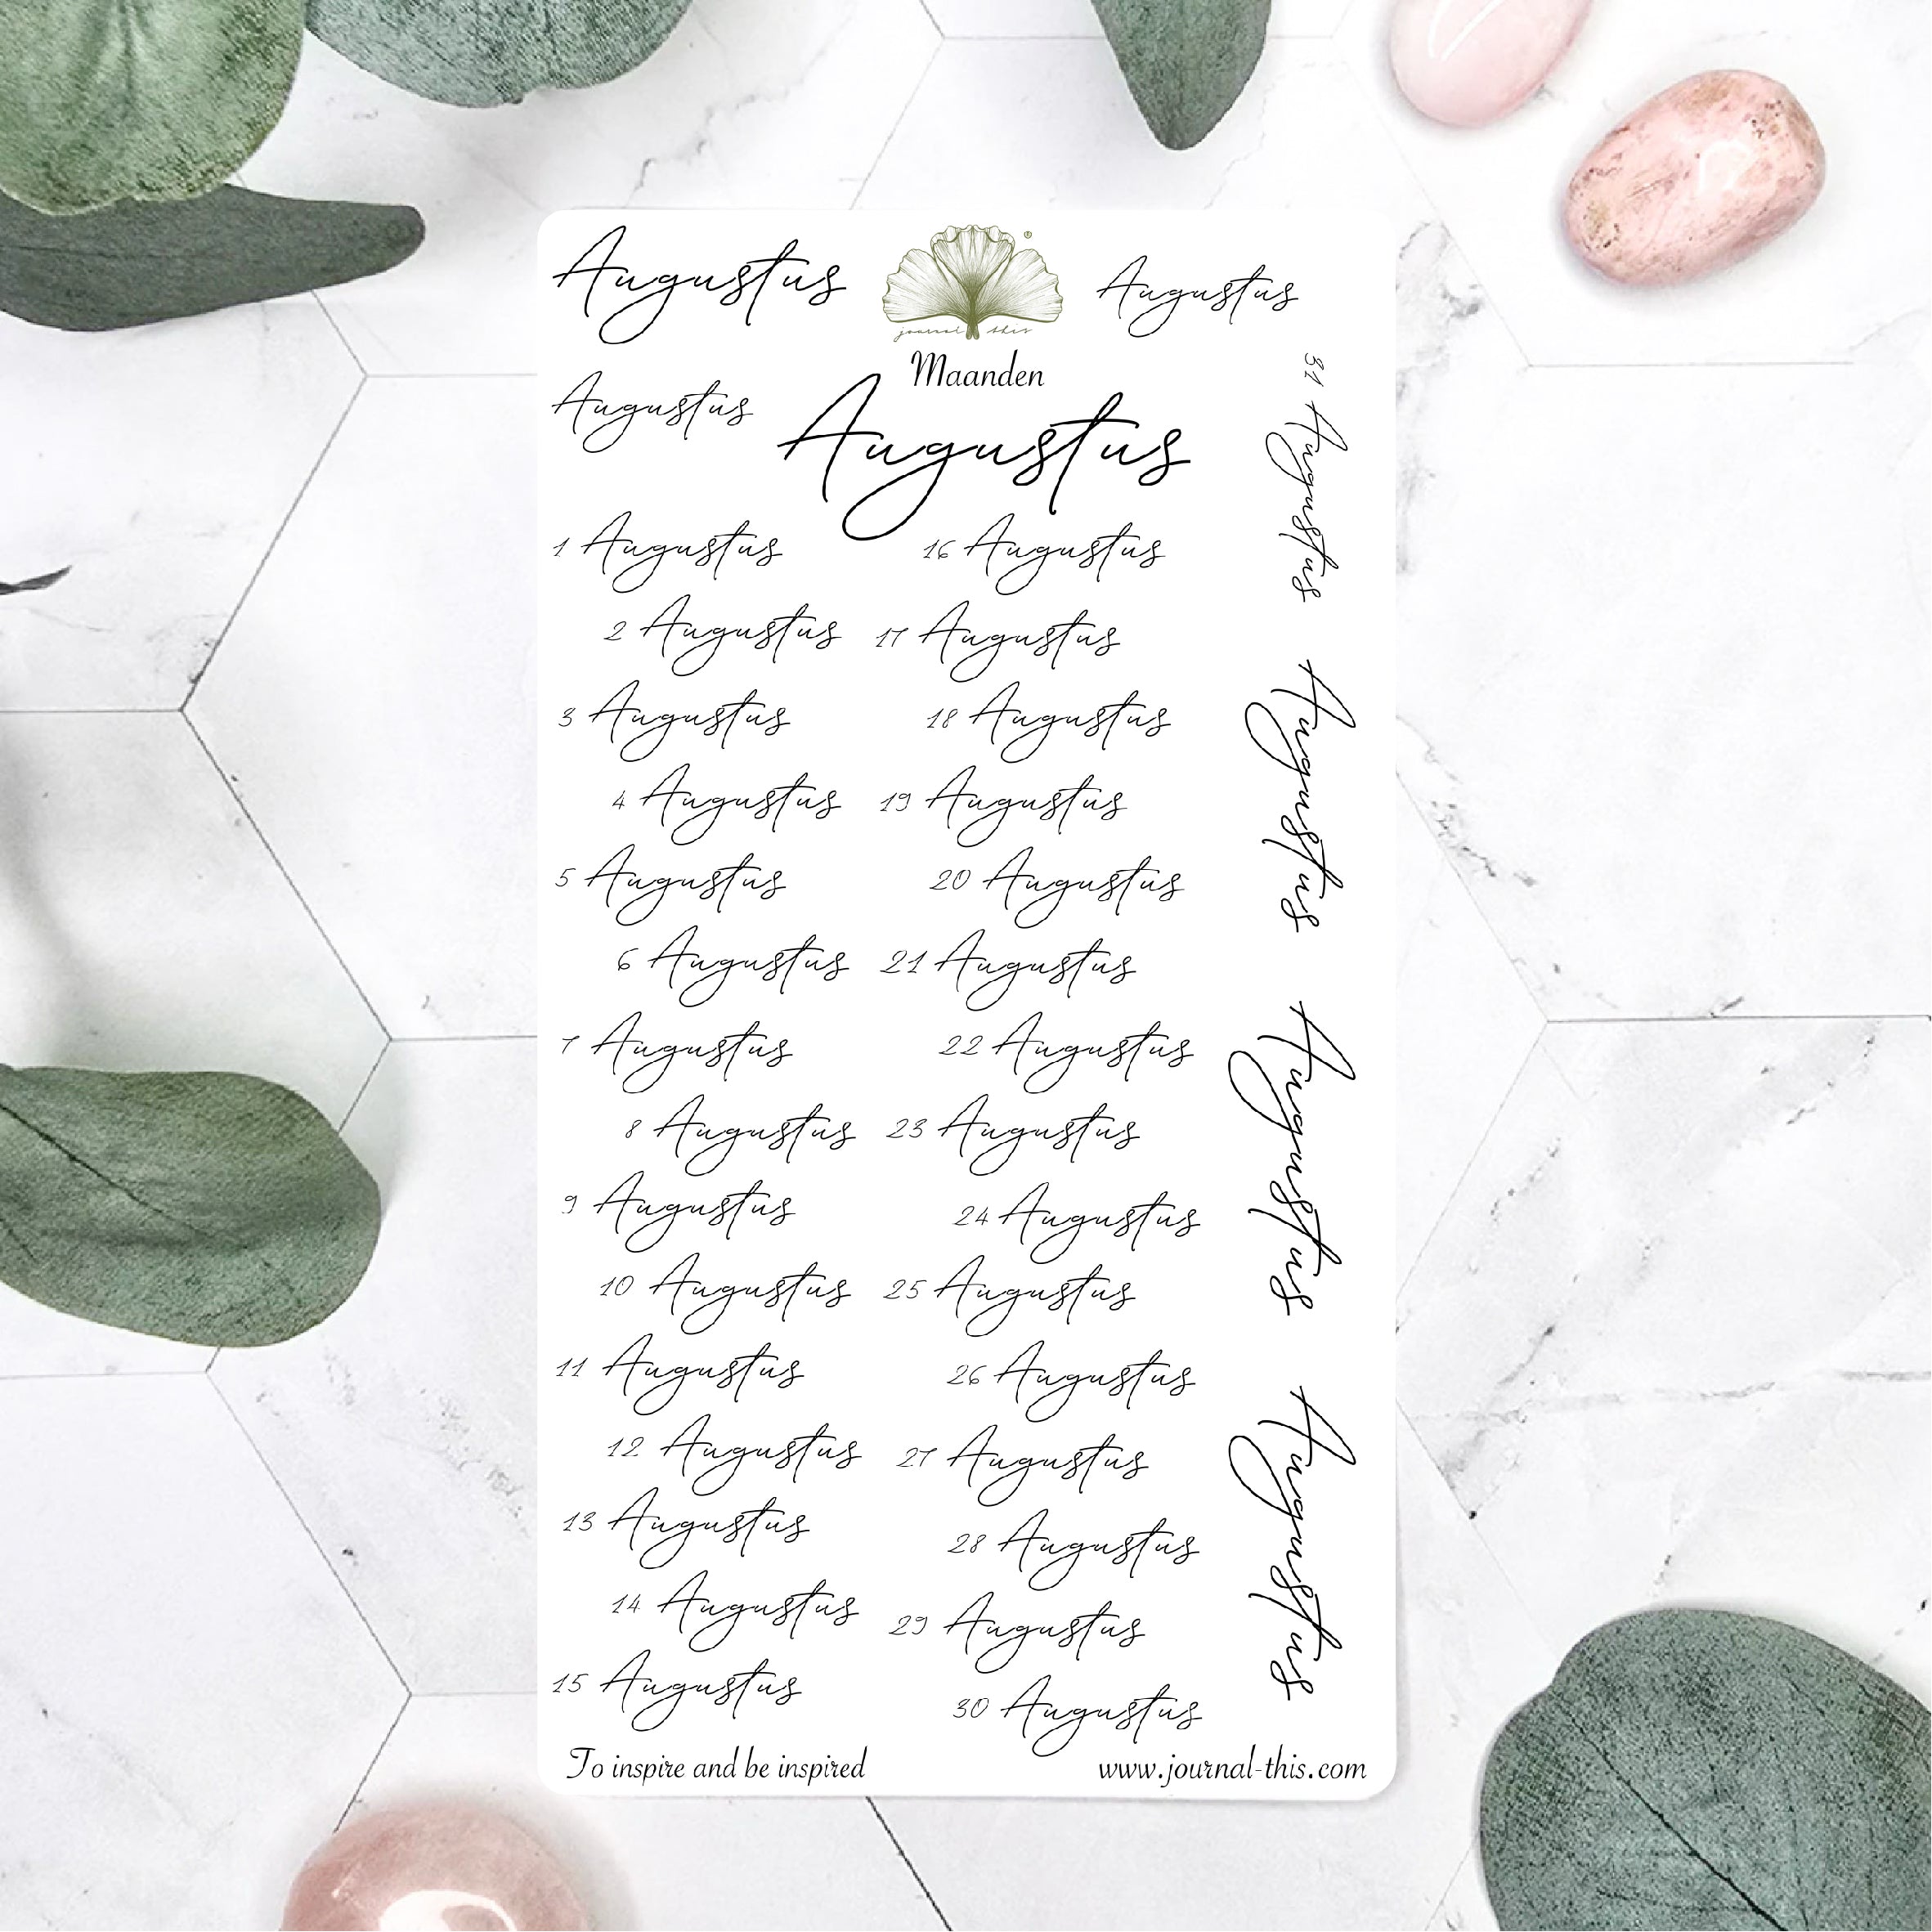 Augustus
journal this
Augustus
Maanden
Augustus
Augustus
1 Augustus
2 Augustus
3 Augustus
4 Augustus
5 Augustus
6 Augustus
7 Augustus
8 Augustus
9 Augustus
10 Augustus
11 Augustus
12 Augustus
13 Augustus
14 Augustus
15 Augustus
16 Augustus
17 Augustus
18 Augustus
19 Augustus
20 Augustus
21 Augustus
22 Augustus
23 Augustus
24 Augustus
25 Augustus
26 Augustus
27 Augustus
28 Augustus
29 Augustus
30 Augustus
31 Augustus
Augustus
Augustus
Augustus
To inspire and be inspired
www.journal-this.com